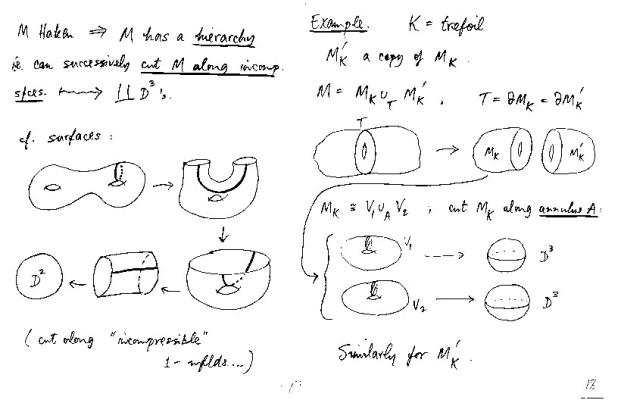 M Haken ⇒ M has a hierarchy
ie. can successively cut M along incomp.
sfces. ⟼ ∐ D³'s.
cf. surfaces :
D²
( cut along "incompressible"
1-mflds....)
Example. K = trefoil
M'_K a copy of M_K.
M = M_K ∪_T M'_K , T = ∂M_K = ∂M'_K
T
M_K M'_K
M_K ≅ V₁ ∪_A V₂ ; cut M_K along annulus A:
V₁ D³
V₂ D³
Similarly for M'_K.